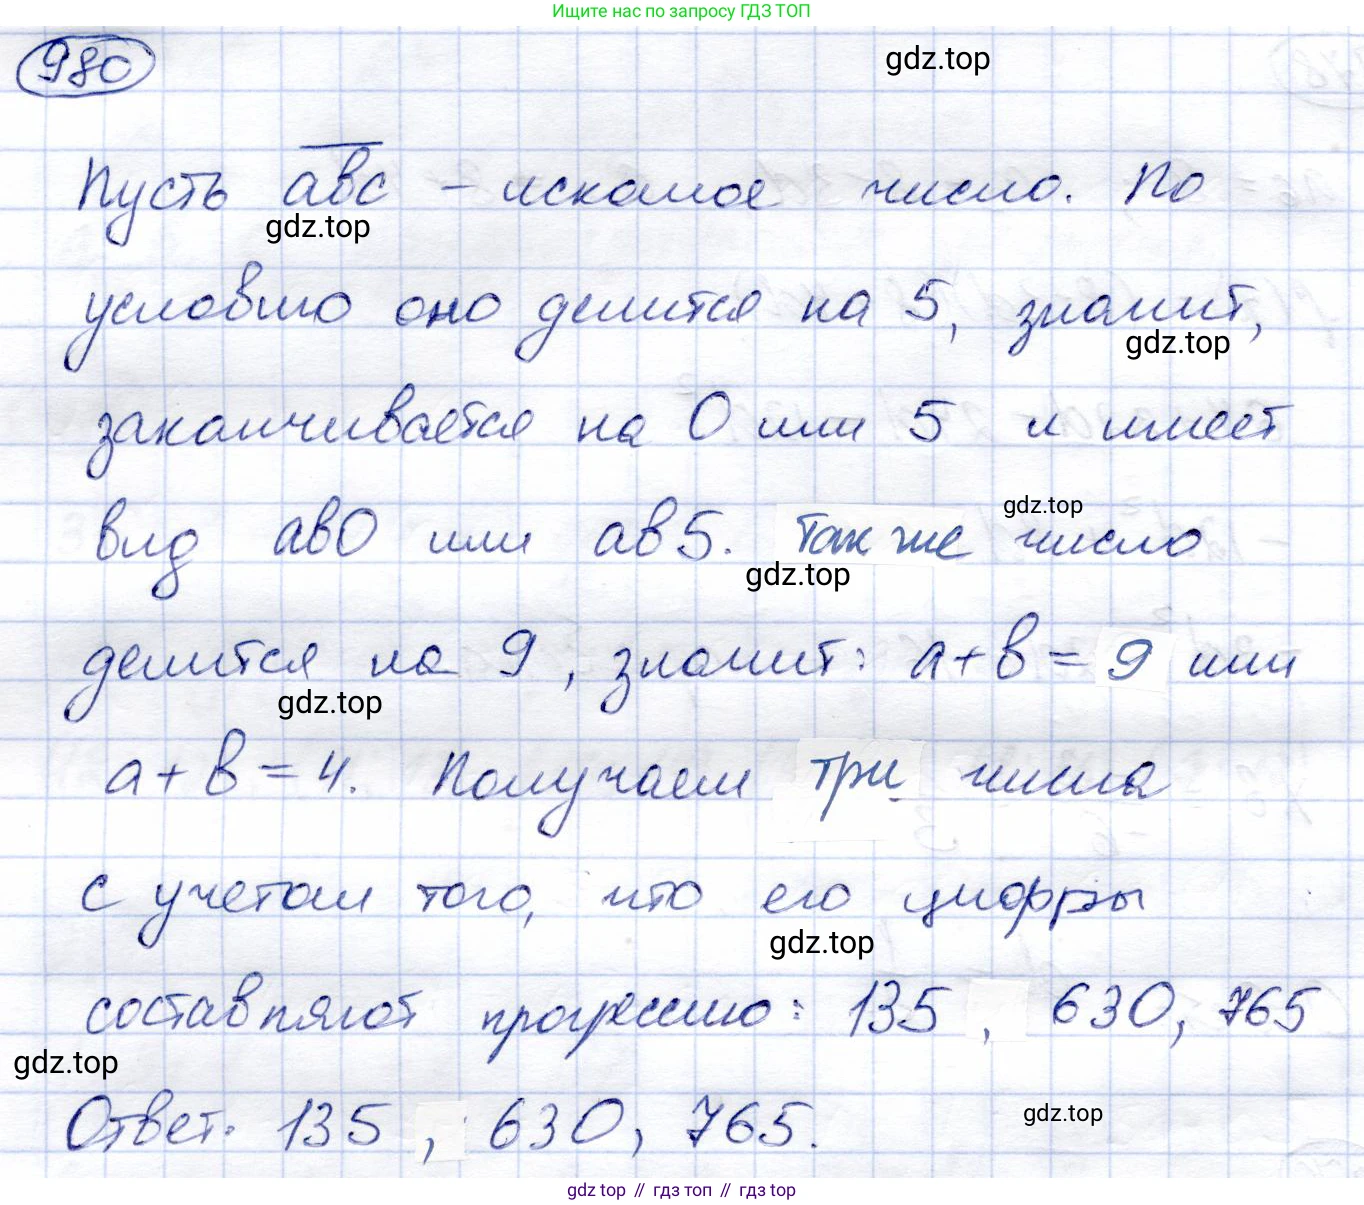 Ищите нас по запросу ГДЗ ТОП
980
gdz.top
Пусть авс – искомое число. По
gdz.top
условию оно делится на 5, значит,
gdz.top
заканчивается на 0 или 5 и имеет
gdz.top
вид ав0 или ав5. Так же число
gdz.top
делится на 9, значит: а+в=9 или
gdz.top
а+в=4. Получаем три числа
с учетом того, что его цифры
gdz.top
составляют прогрессию: 135, 630, 765
gdz.top
Ответ. 135, 630, 765.
gdz.top
gdz top // гдз топ // gdz top